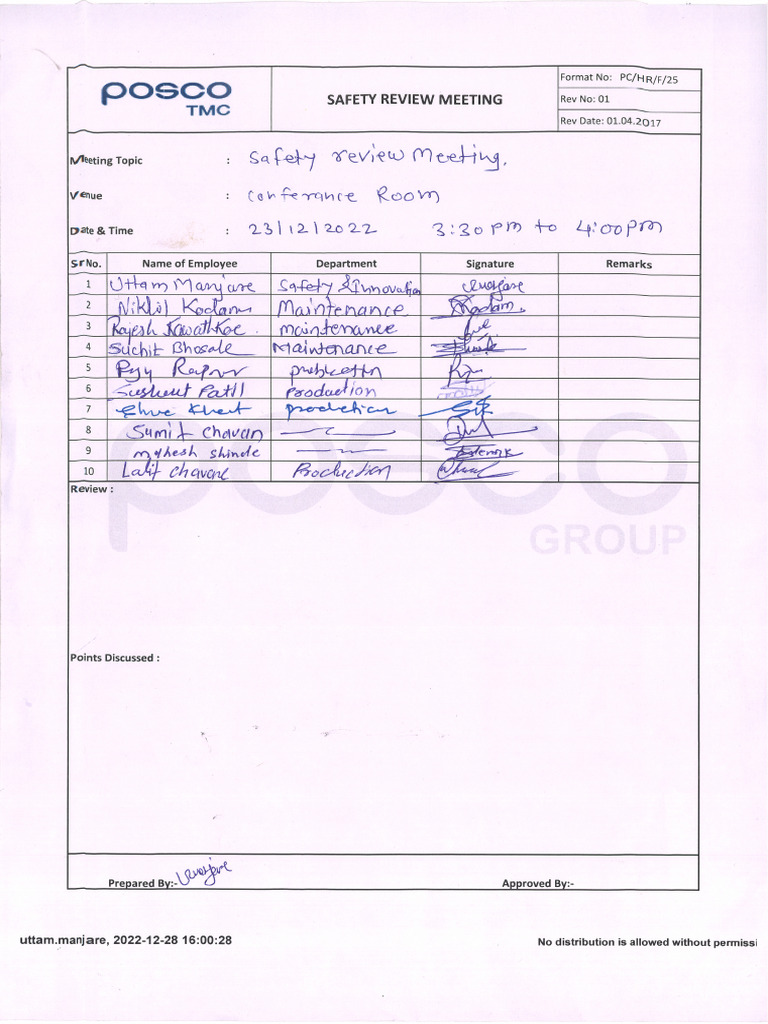 posco
TMC
SAFETY REVIEW MEETING
Format No: PC/HR/F/25
Rev No: 01
Rev Date: 01.04.2017
Meeting Topic : Safety review Meeting.
Venue : Conferance Room
Date & Time : 23/12/2022 3:30 PM to 4:00 PM
Sr No. Name of Employee Department Signature Remarks
1 Uttam Manjare Safety & Innovation Umanjare
2 Nikhil Kadam Maintenance Kadam
3 Rajesh Kawathkoe. maintenance
4 Suchit Bhosale Maintenance
5
6 Sushant Patil Production
7 production
8 Sumit Chavan
9 mahesh shinde
10 Lalit Chavare Production
Review :
posco
GROUP
Points Discussed :
Prepared By:- Umanjare
Approved By:-
uttam.manjare, 2022-12-28 16:00:28
No distribution is allowed without permissi